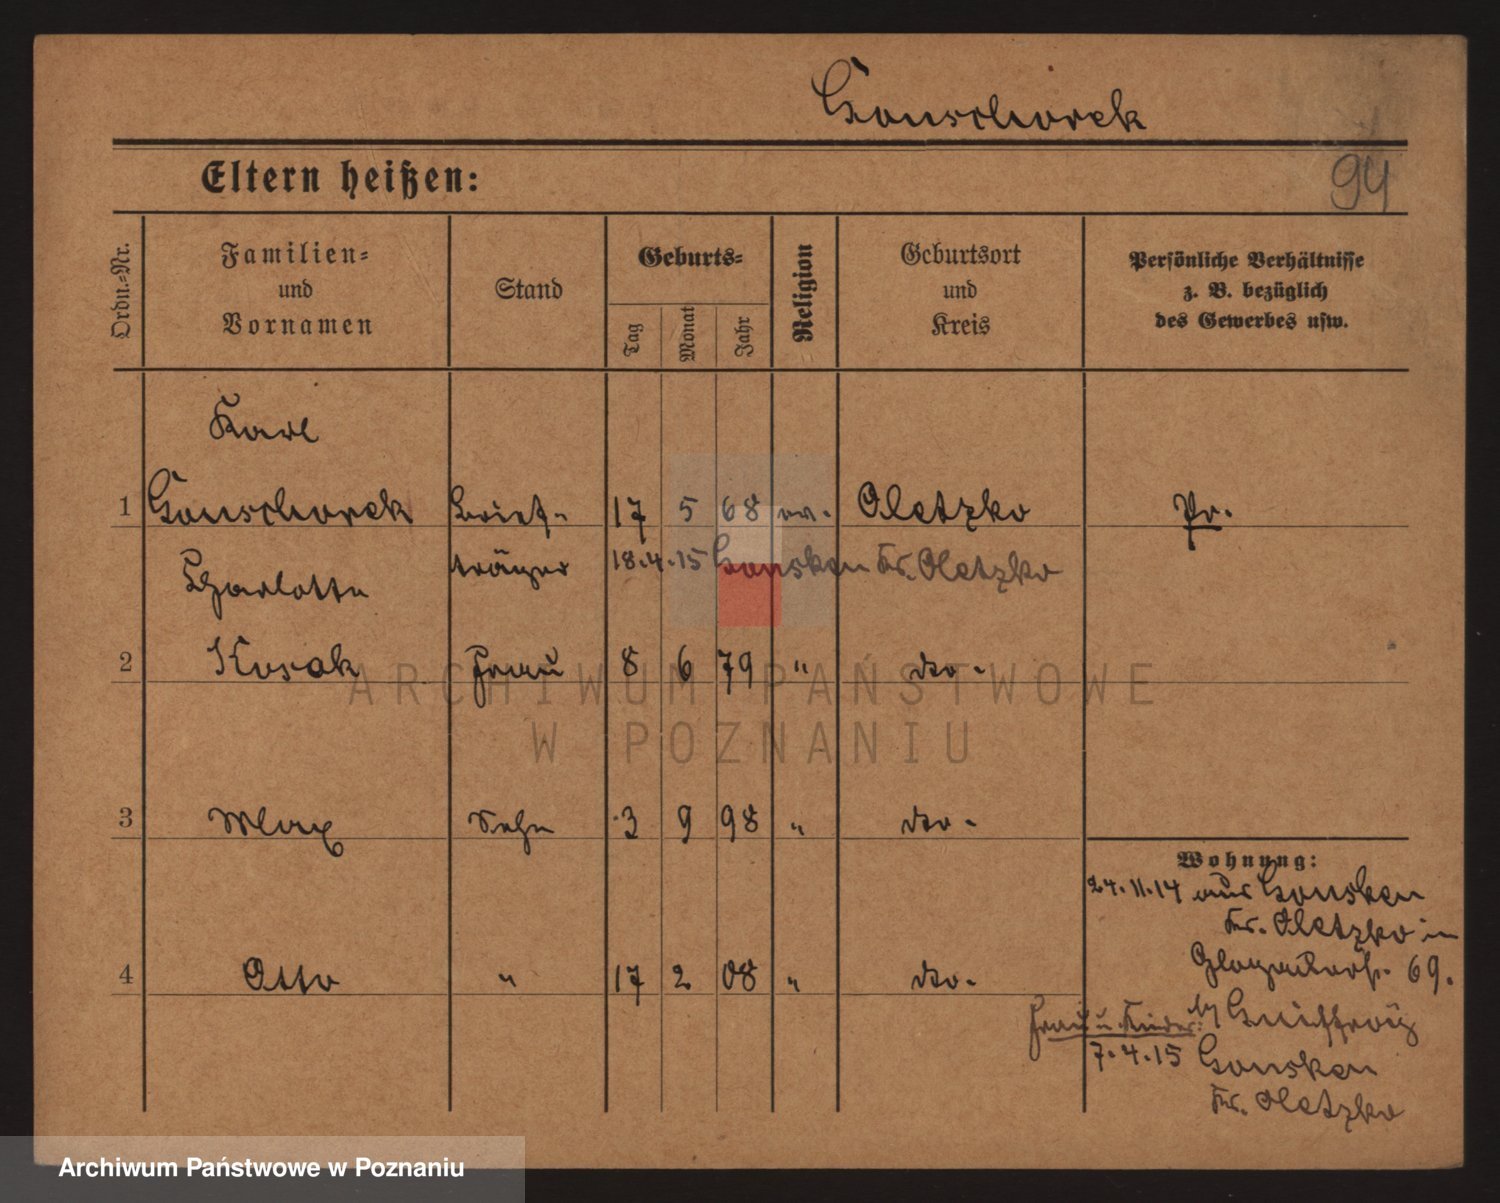 Gonschorek
94
Eltern heißen:
Ordn.-Nr.
Familien-
und
Vornamen
Stand
Geburts-
Tag
Monat
Jahr
Religion
Geburtsort
und
Kreis
Persönliche Verhältnisse
z. B. bezüglich
des Gewerbes usw.
Karl
1 Gonschorek Brief- 17 5 68 ev. Oletzko Pr.
träger 18.4.15 Gonsken Kr. Oletzko
Charlotte
2 Kosak Frau 8 6 79 " do -
3 Max Sohn 3 9 98 " do -
Wohnung:
24.11.14 aus Gonsken
Kr. Oletzko in
4 Otto " 17 2 08 " do -
69.
Frau u. Kinder: by
7.4.15 Gonsken
Kr. Oletzko
ARCHIWUM PAŃSTWOWE
W POZNANIU
Archiwum Państwowe w Poznaniu